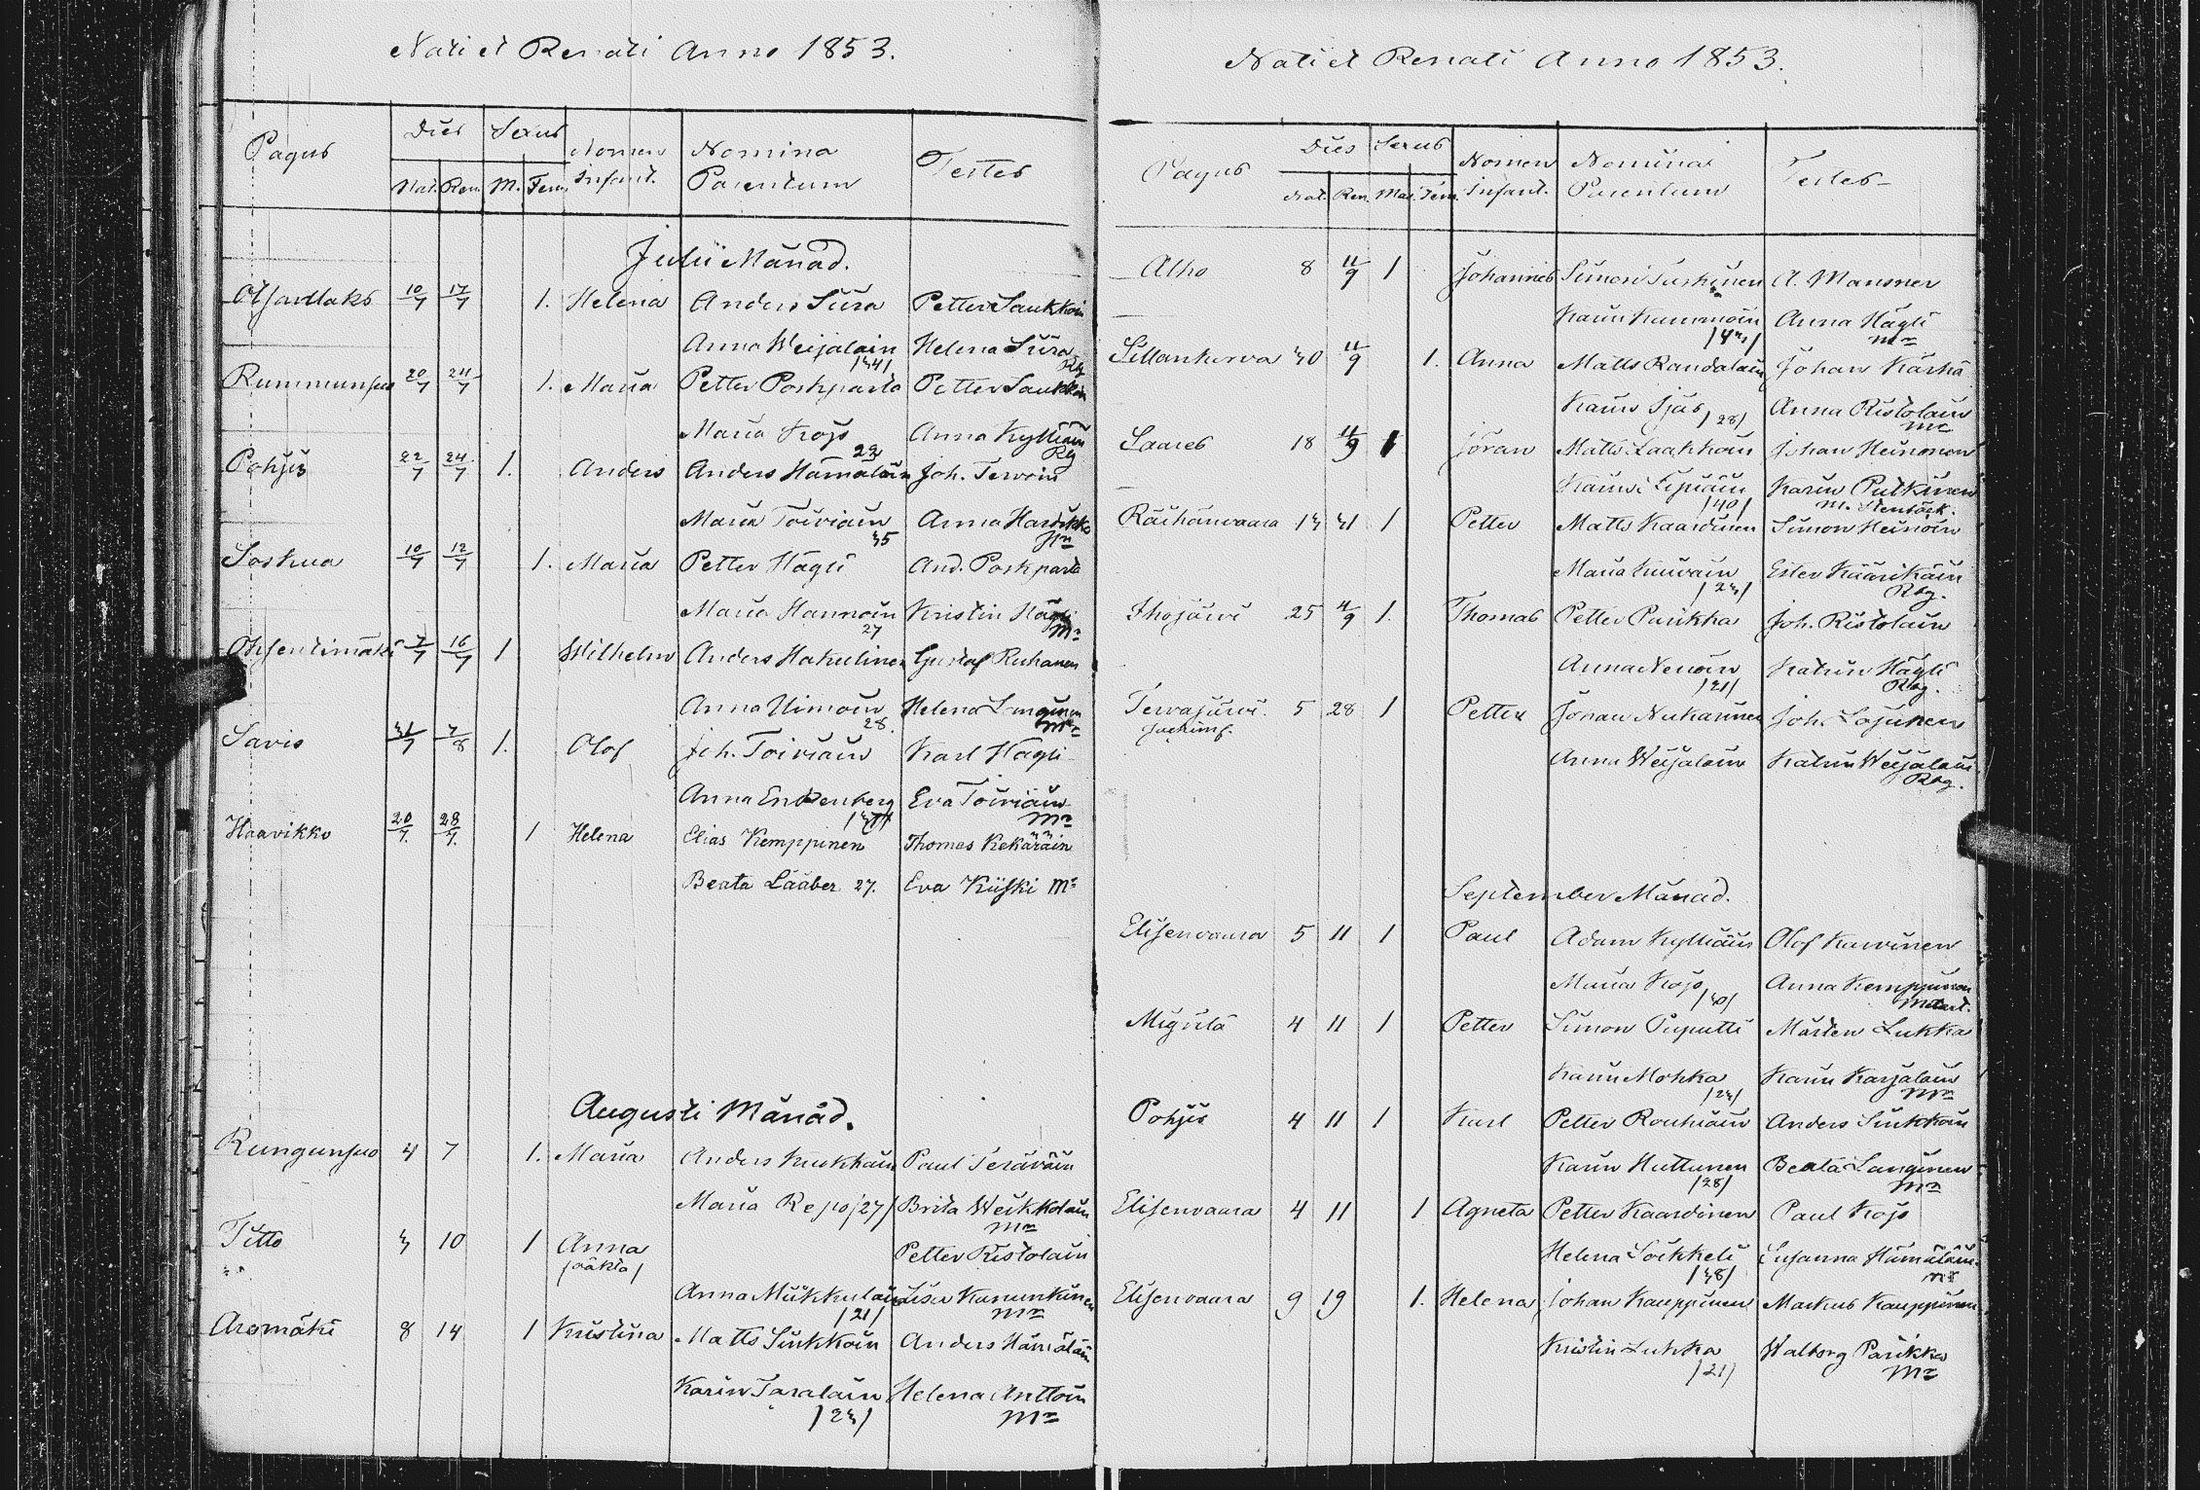 Nati et Renati Anno 1853.
Pagus Dies Sexus Nomen Infant. Nomina Parentum Testes
Nat. Ren. M. Fem.
Julii Månad.
10/7 17/7 1. Helena Anders Siira Petter Saukkoin
Anna Weijalain Helena Siira
Rummunsuo 20/7 24/7 1. Maria Petter Poskiparta Petter Saukkoin
Maria Kojo Anna Kylliäin
22 Rg
Pohjis 22/7 24/7 1. Anders Anders Hämäläin Joh. Terwoin
Maria Toiviain Anna Harikko
35
Soskua 10/7 12/7 1. Maria Petter Hägli And. Poskparta
Maria Hannoin Kristin Hägli
27 Mr
7/7 16/7 1 Wilhelm Anders Hakulinen Gustaf Ruhanen
Anna Uimoin Helena
28. Mr
Savis 31/7 7/8 1. Olof Joh. Toiviain Karl Hägli
Anna Enckenberg Eva Toiviain
Mr
Haavikko 20/7. 28/7. 1 Helena Elias Kemppinen Thomas Kekäräin
Beata Lääber 27. Eva Kiiski Mr
Augusti Månad.
Rungunsuo 4 7 1. Maria Anders Kukkain Paul Teräväin
Maria Repo /27/ Brita Weikkolain
Mr
Titto 3 10 1 Anna Petter Ristolain
/oäkta/
Anna Mükkulain Lisa Kanunkinen
/21/ Mr
Aromäki 8 14 1 Kristina Matts Sinkkoin Anders Hämäläin
Karin Taralain Helena Anttoin
/23/ Mr
Nati et Renati Anno 1853.
Pagus Dies Sexus Nomen Infant. Nomina Parentum Testes
Nat. Ren. Mas. Fem.
Alho 8 11/9 1 Johannes Simon A. Mansner
Karin Anna Hägli
Mr
Sillankorva 30 11/9 1. Anna Matts Randalain Johan Kärhä
Karin Sjäs Anna Ristolain
/28/ Mr
Saares 18 11/9 1 Jöran Matts Laakkoin Johan Heinonen
Karin Putkinen
/40/ M. Stenbäck.
Räihänvaara 13 31 1 Petter Matts Kaardinen Simon Heinoin
Maria Ester Käärikäin
/23/ Rbg.
Ihojärvi 25 4/9 1. Thomas Petter Parikka Joh. Ristolain
Anna Nenoin Katrin Hägli
/21/ Rbg.
Tervajärvi 5 28 1 Petter Johan Nukarinen Joh. Lojunen
Anna Weijalain Katrin Weijalain
Rbg.
September Månad.
Elisenvaara 5 11 1 Paul Adam Kylliäin Olof Karvinen
Maria Kojo Anna Kemppinen
/30/
Migula 4 11 1 Petter Simon Puputti Mårten Lukka
Karin Mohka Karin Karjalain
/23/ Mr
Pohjis 4 11 1 Karl Petter Rouhiain Anders Sinkkoin
Karin Huttunen Beata Langinen
/28/ Mr
Elisenvaara 4 11 1 Agneta Petter Kaardinen Paul Kojo
Helena Soikkeli Susanna Hämäläin
/38/ Mr
Elisenvaara 9 19 1. Helena Johan Kauppinen Markus Kauppinen
Kristin Lukka Walborg Parikka
/21/ Mr